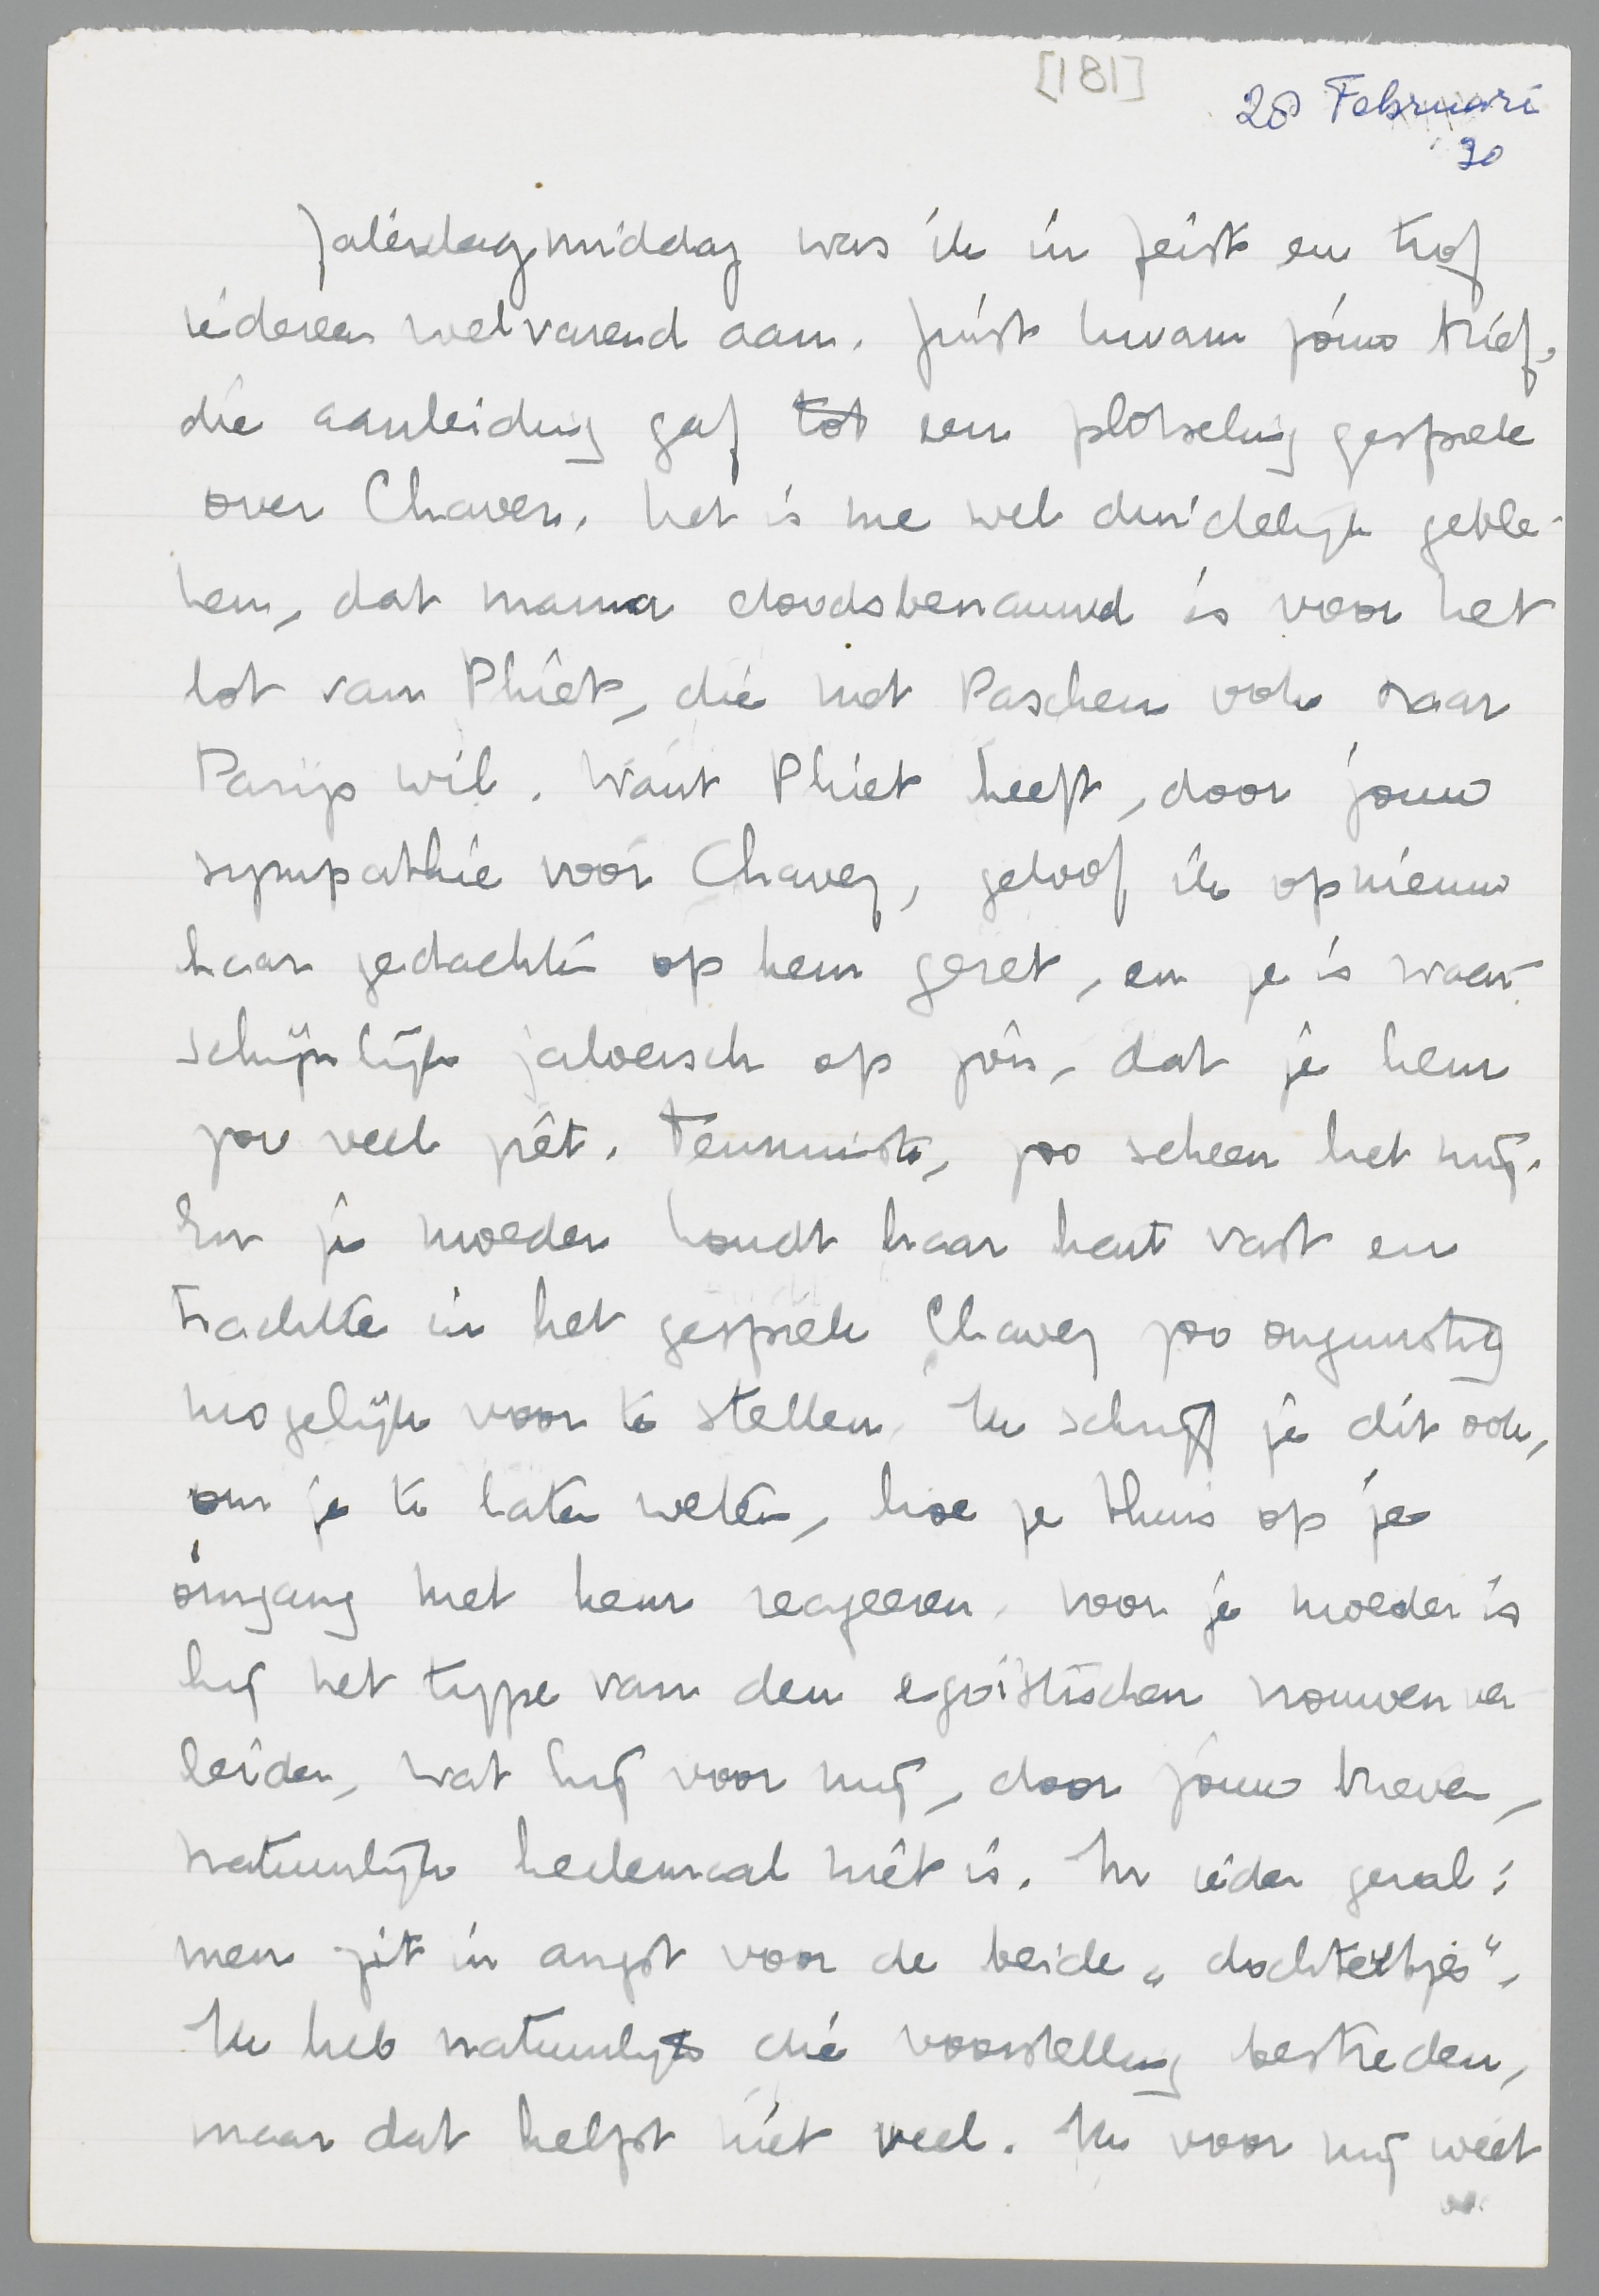 [181]
28 Februari
30
Zaterdagmiddag was ik in Zeist en trof
iedereen welvarend aan. Juist kwam jouw brief,
die aanleiding gaf tot een plotseling gesprek
over Chavez. Het is me wel duidelijk geble-
ken, dat mama doodsbenauwd is voor het
lot van Phiet, die met Paschen ook naar
Parijs wil. Want Phiet heeft, door jouw
sympathie voor Chavez, geloof ik opnieuw
haar gedachten op hem gezet, en ze is waar-
schijnlijk jaloersch op jou, dat je hem
zoo veel ziet. Tenminste, zoo scheen het mij.
En je moeder houdt haar hart vast en
trachtte in het gesprek Chavez zoo ongunstig
mogelijk voor te stellen. Ik schrijf je dit ook,
om je te laten weten, hoe ze thuis op je
omgang met hem reageeren. Voor je moeder is
hij het type van den egoïstischen vrouwenver-
leider, wat hij voor mij, door jouw brieven,
natuurlijk heelemaal niet is. In ieder geval:
men zit in angst voor de beide „dochtertjes".
Ik heb natuurlijk die voorstelling bestreden,
maar dat helpt niet veel. Ik voor mij weet